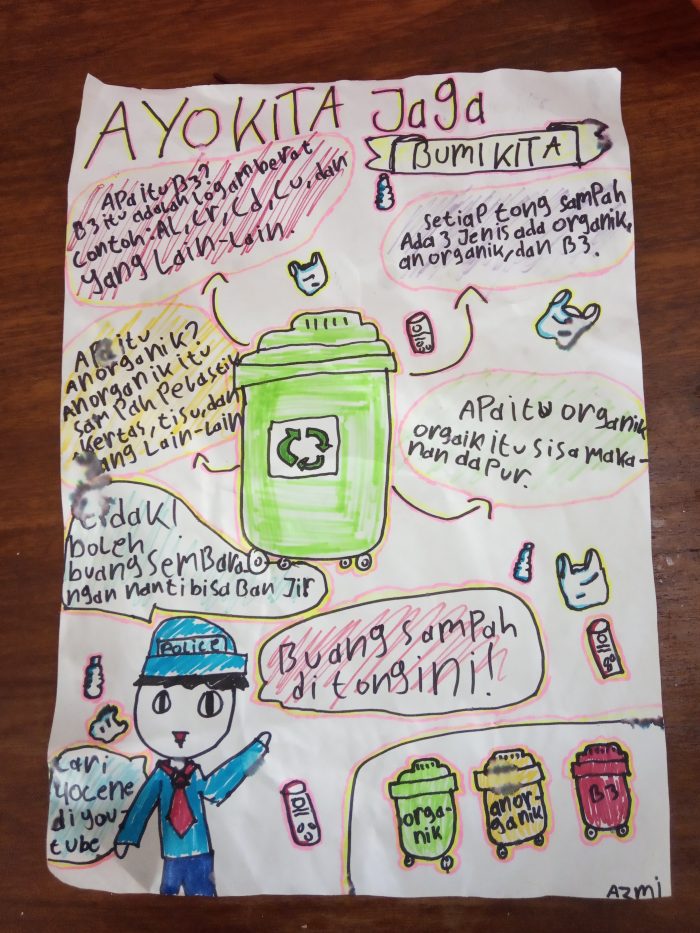 AYO KITA Jaga
BUMI KITA
APa itu B3?
B3 itu adalah Logam berat
Contoh: AL, Cr, Cd, Cu, dan
yang Lain-Lain.
Setiap tong samPah
Ada 3 Jenis ada organik,
anorganik, dan B3.
APa itu
anorganik?
Anorganik itu
samPah Pelastik
kertas, tisu, dan
yang Lain-Lain
APa itu organik
orgaik itu sisa maka-
nan dapur.
tidak
boleh
buang sembara
ngan nanti bisa Ban Jir
Buang samPah
di tong ini!
POLICE
Cari
yocene
di you-
tube
orga-
nik
anor-
ganik
B3
Azmi